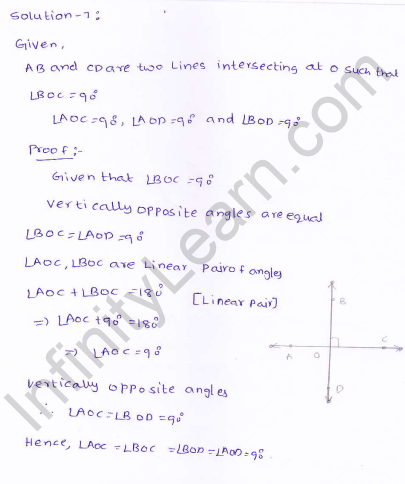 Solution-7:
Given,
AB and CD are two Lines intersecting at O such that
∠BOC = 90°
∠AOC = 90°, ∠AOD = 90° and ∠BOD = 90°
Proof:-
Given that ∠BOC = 90°
Vertically opposite angles are equal
∠BOC = ∠AOD = 90°
∠AOC, ∠BOC are Linear Pair of angles
∠AOC + ∠BOC = 180° [Linear Pair]
=> ∠AOC + 90° = 180°
=> ∠AOC = 90°
Vertically opposite angles
∴ ∠AOC = ∠BOD = 90°
Hence, ∠AOC = ∠BOC = ∠BOD = ∠AOD = 90°.
B
A O C
D
InfinityLearn.com